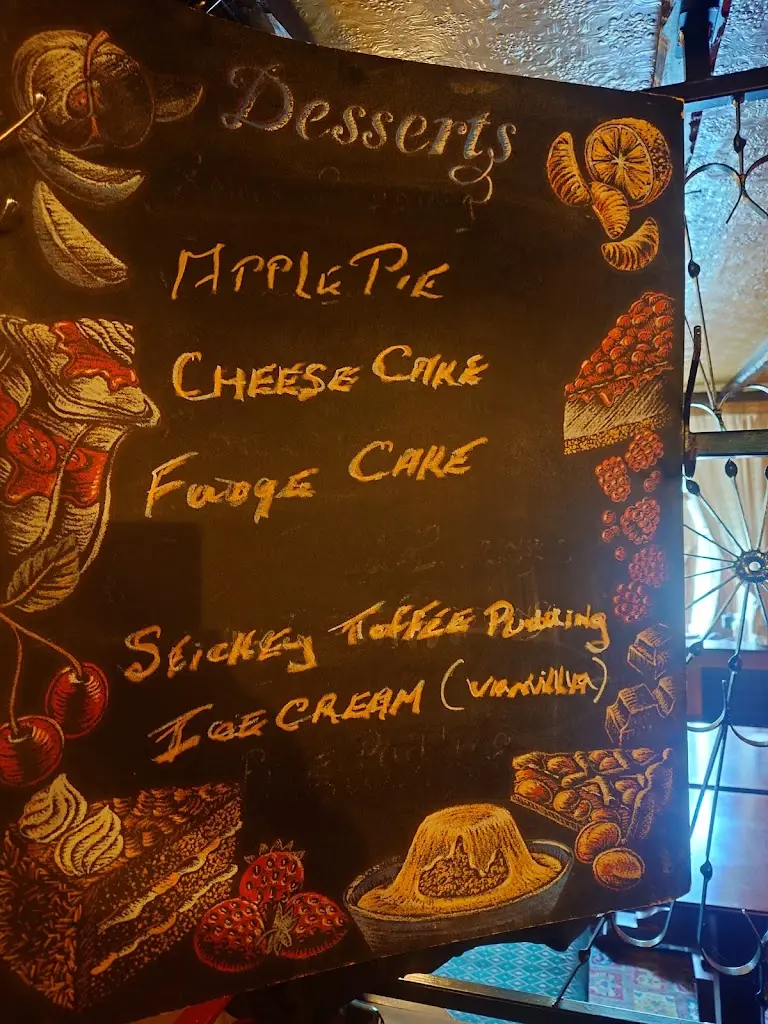 Desserts
APPLE PIE
CHEESE CAKE
FUDGE CAKE
STICKEY TOFFEE PUDDING
ICE CREAM (VANILLIA)